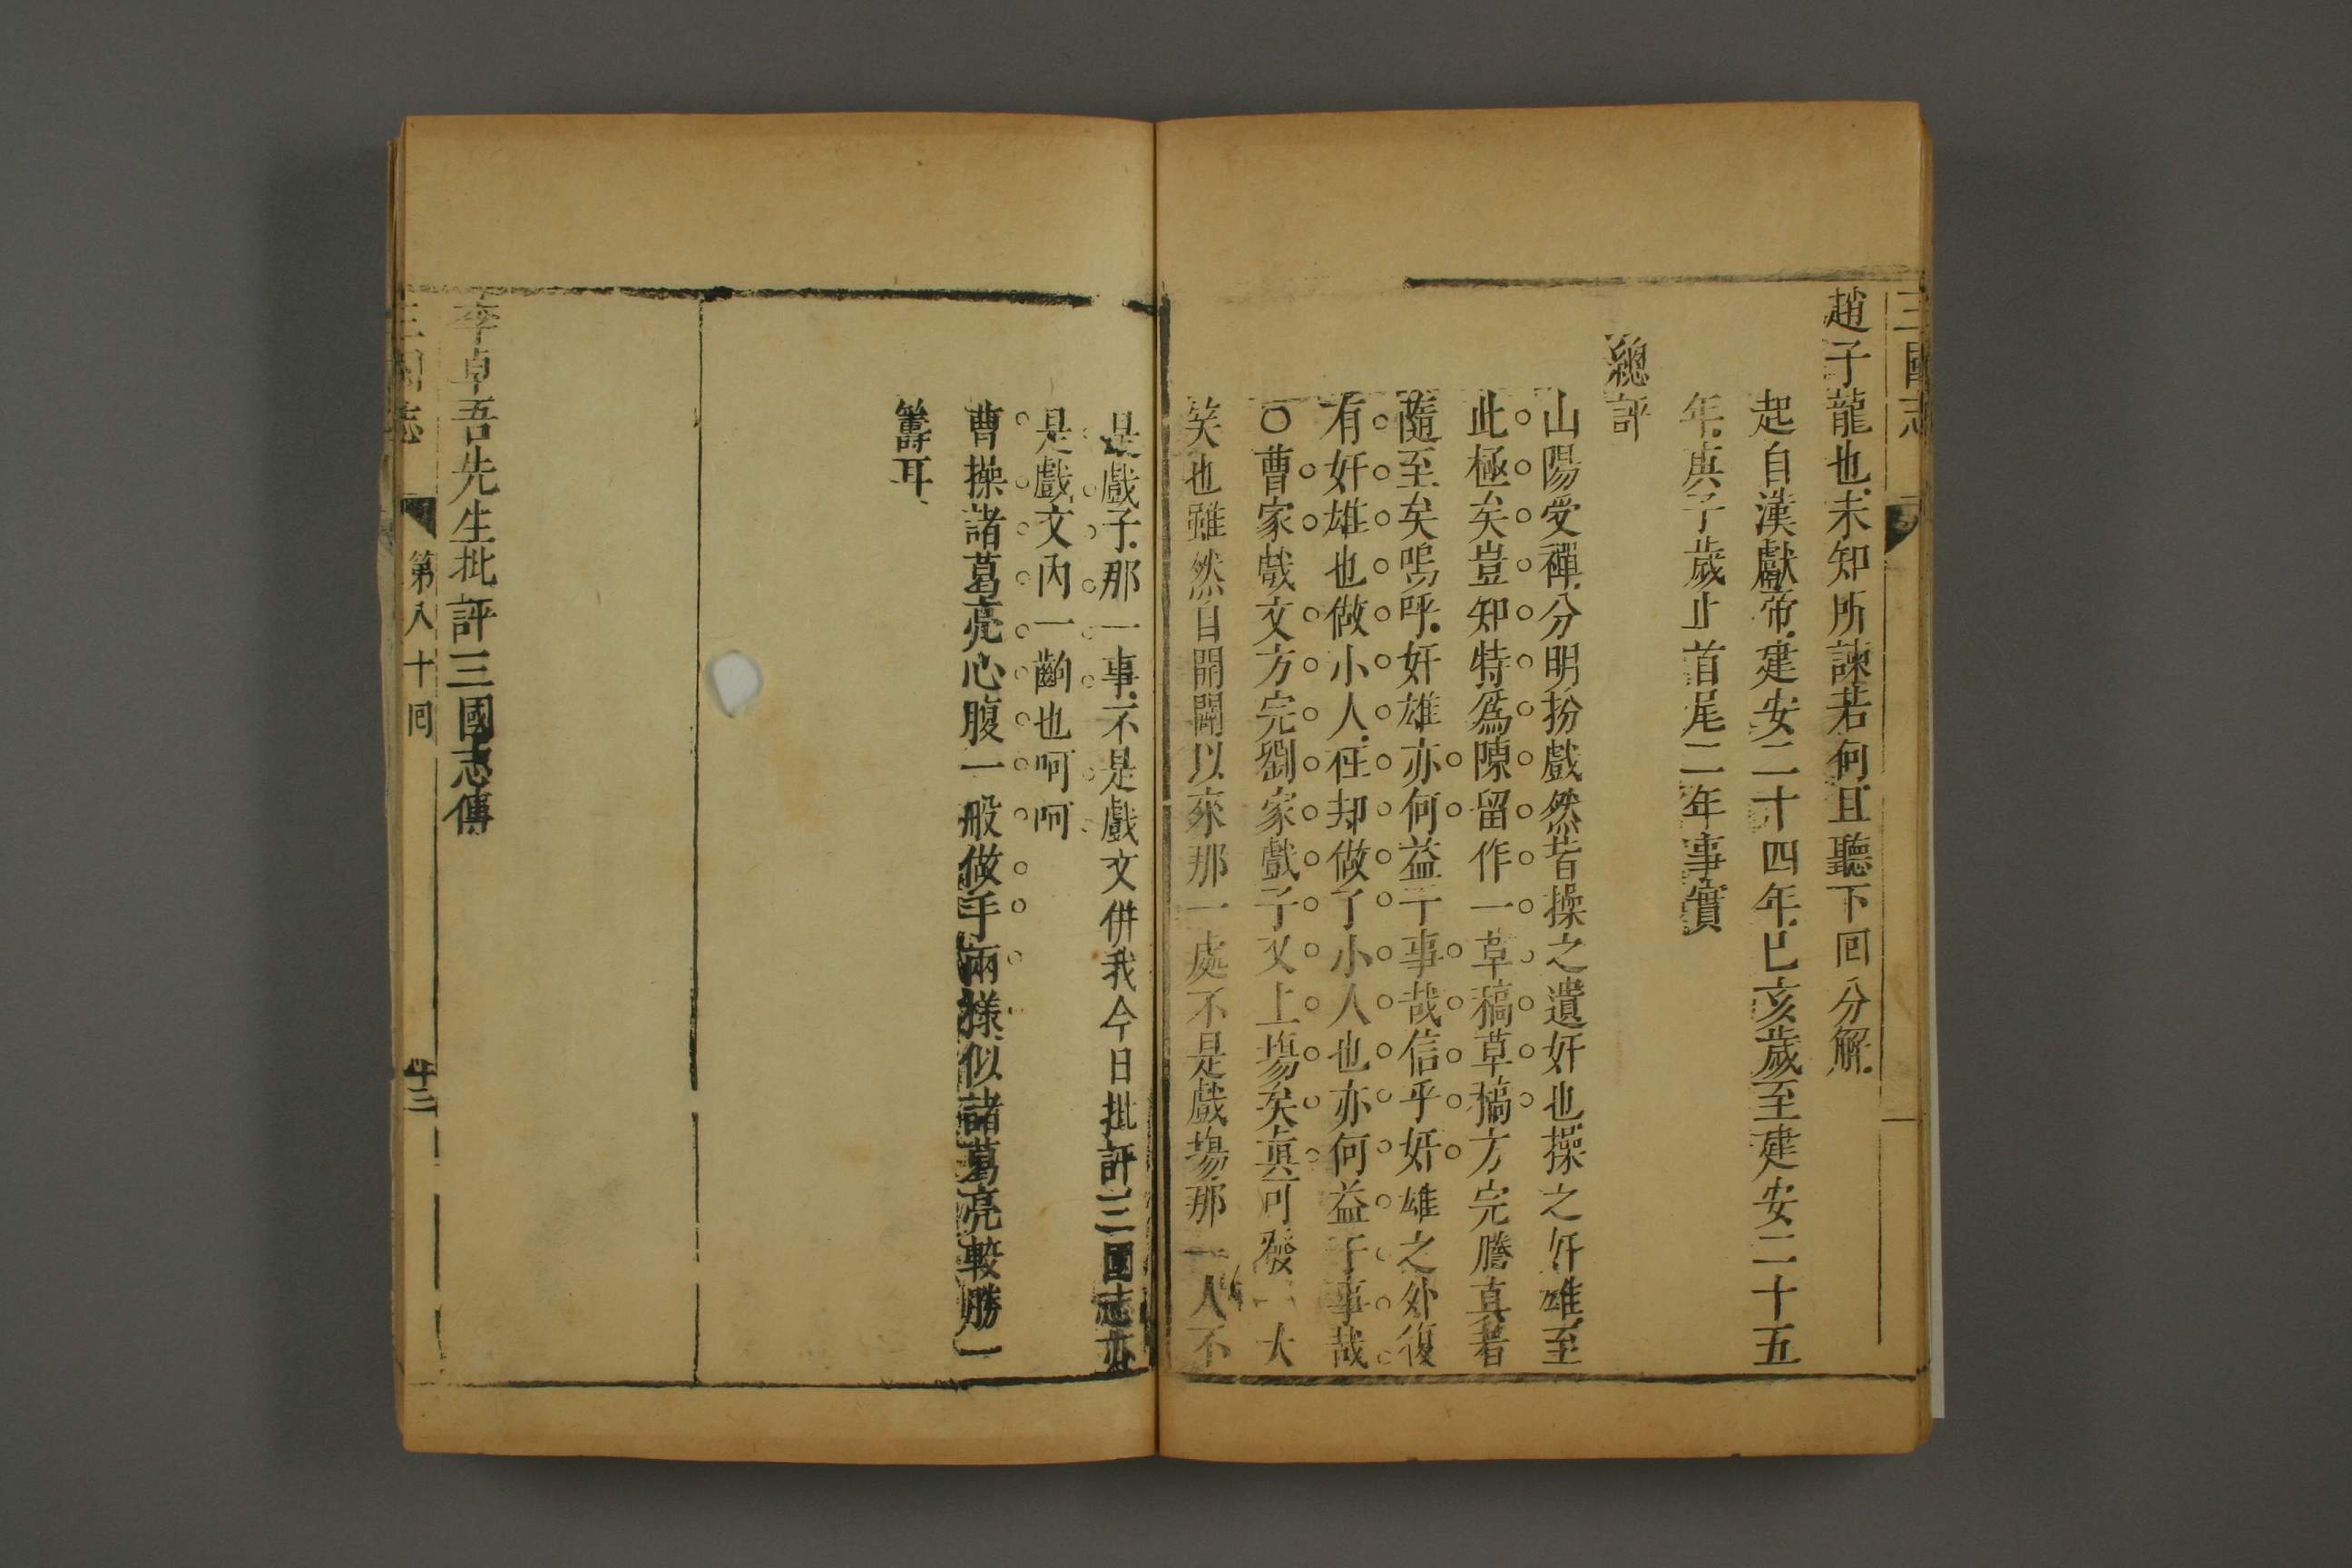 三國志
趙子龍也未知所諫若何且聽下回分解
起自漢獻帝建安二十四年巳亥歲至建安二十五
年庚子歲止首尾二年事實
總評
山陽受禪分明扮戲然皆操之遺奸也操之奸雄至
此極矣豈知特爲陳留作一草稿草稿方完謄真着
隨至矣嗚呼奸雄亦何益于事哉信乎奸雄之外復
有奸雄也做小人在却做了小人也亦何益于事哉
○曹家戲文方完劉家戲子又上塲矣真可發一大
笑也雖然自開闢以來那一處不是戲塲那一人不
是戲子那一事不是戲文併我今日批評三國志亦
是戲文內一齣也呵呵
曹操諸葛亮心腹一般做手兩樣似諸葛亮較勝一
籌耳
李卓吾先生批評三國志傳
三國志
第八十囘
十三